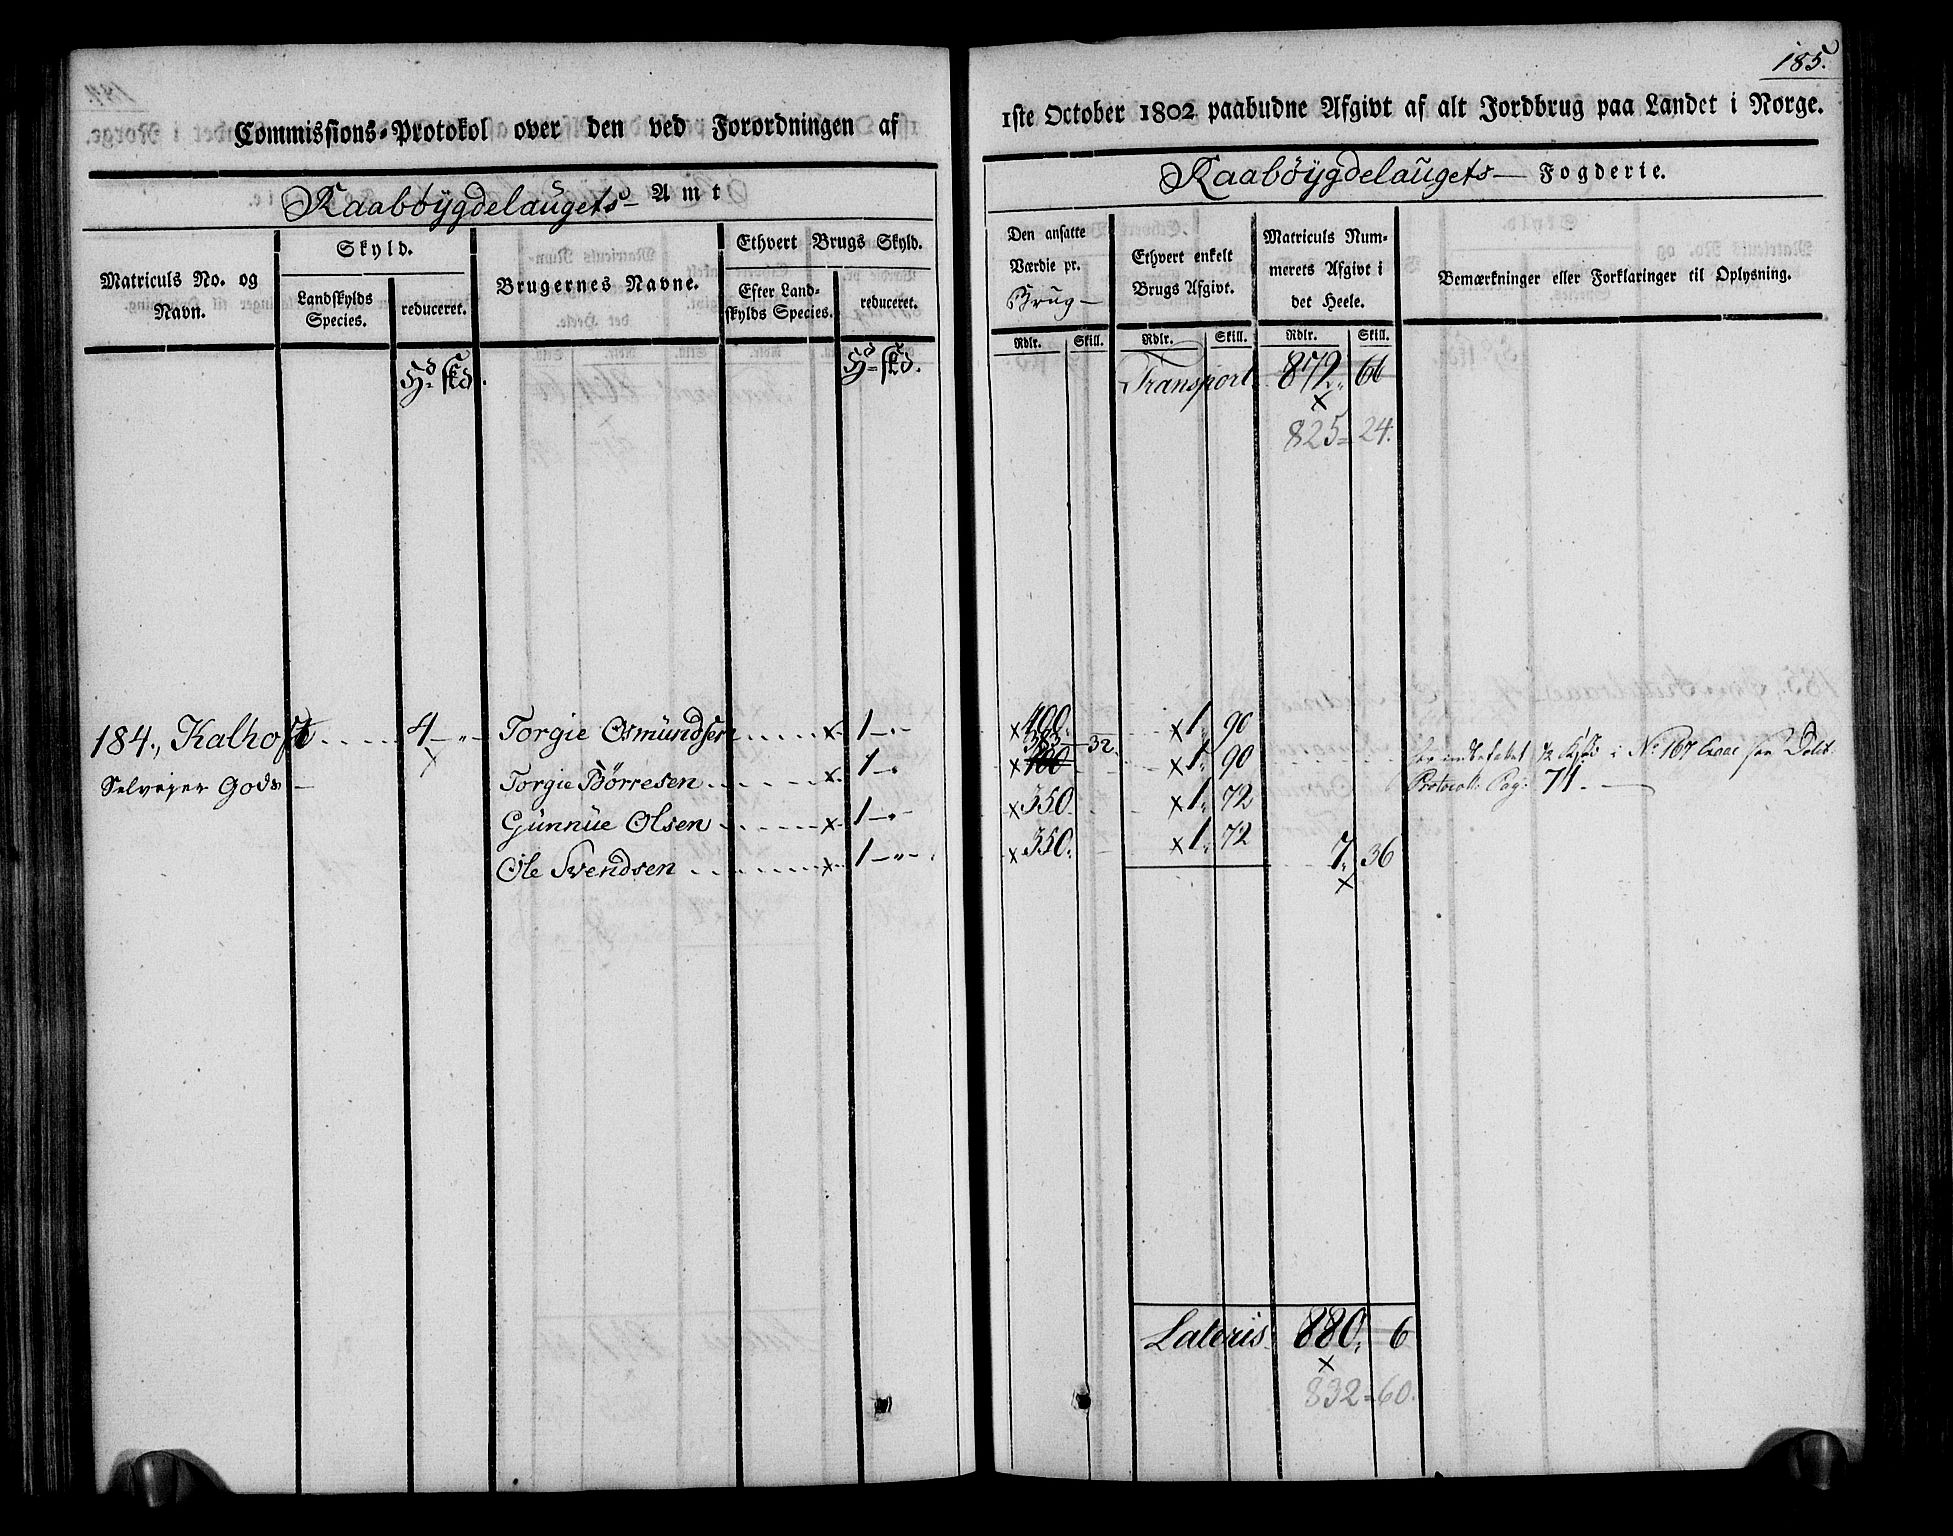 185.
Commissions-Protokol over den ved Forordningen af
1ste October 1802 paabudne Afgivt af alt Jordbrug paa Landet i Norge.
Raabøÿgdelaugets Amt
Raabøÿgdelaugets Fogderie.
Matriculs No. og Navn.
Skyld.
Landskylds Species.
reduceret.
Brugernes Navne.
Ethvert Brugs Skyld.
Efter Landskylds Species.
reduceret.
Den ansatte Værdie pr. Brug
Ethvert enkelt Brugs Afgivt.
Matriculs Nummerets Afgivt i det Heele.
Bemærkninger eller Forklaringer til Oplysning.
Rdlr. Skill. Rdlr. Skill. Rdlr. Skill.
Hd skd. Hd skd.
Transport 872 66
x
825 = 24.
184., Kalhoft 4 Torgie Osmundsen x 1 x 400 x 1 90
383 32
Selveier Gods x Torgie Børresen x 1 x 400 x 1 90 i No. 167
Gunnüe Olsen x 1 x 350 x 1 72 Protocoll Pag: 71.
Ole Svendsen x 1 x 350 x 1 72 7 36
x
Lateris 880 6
x
832 = 60.